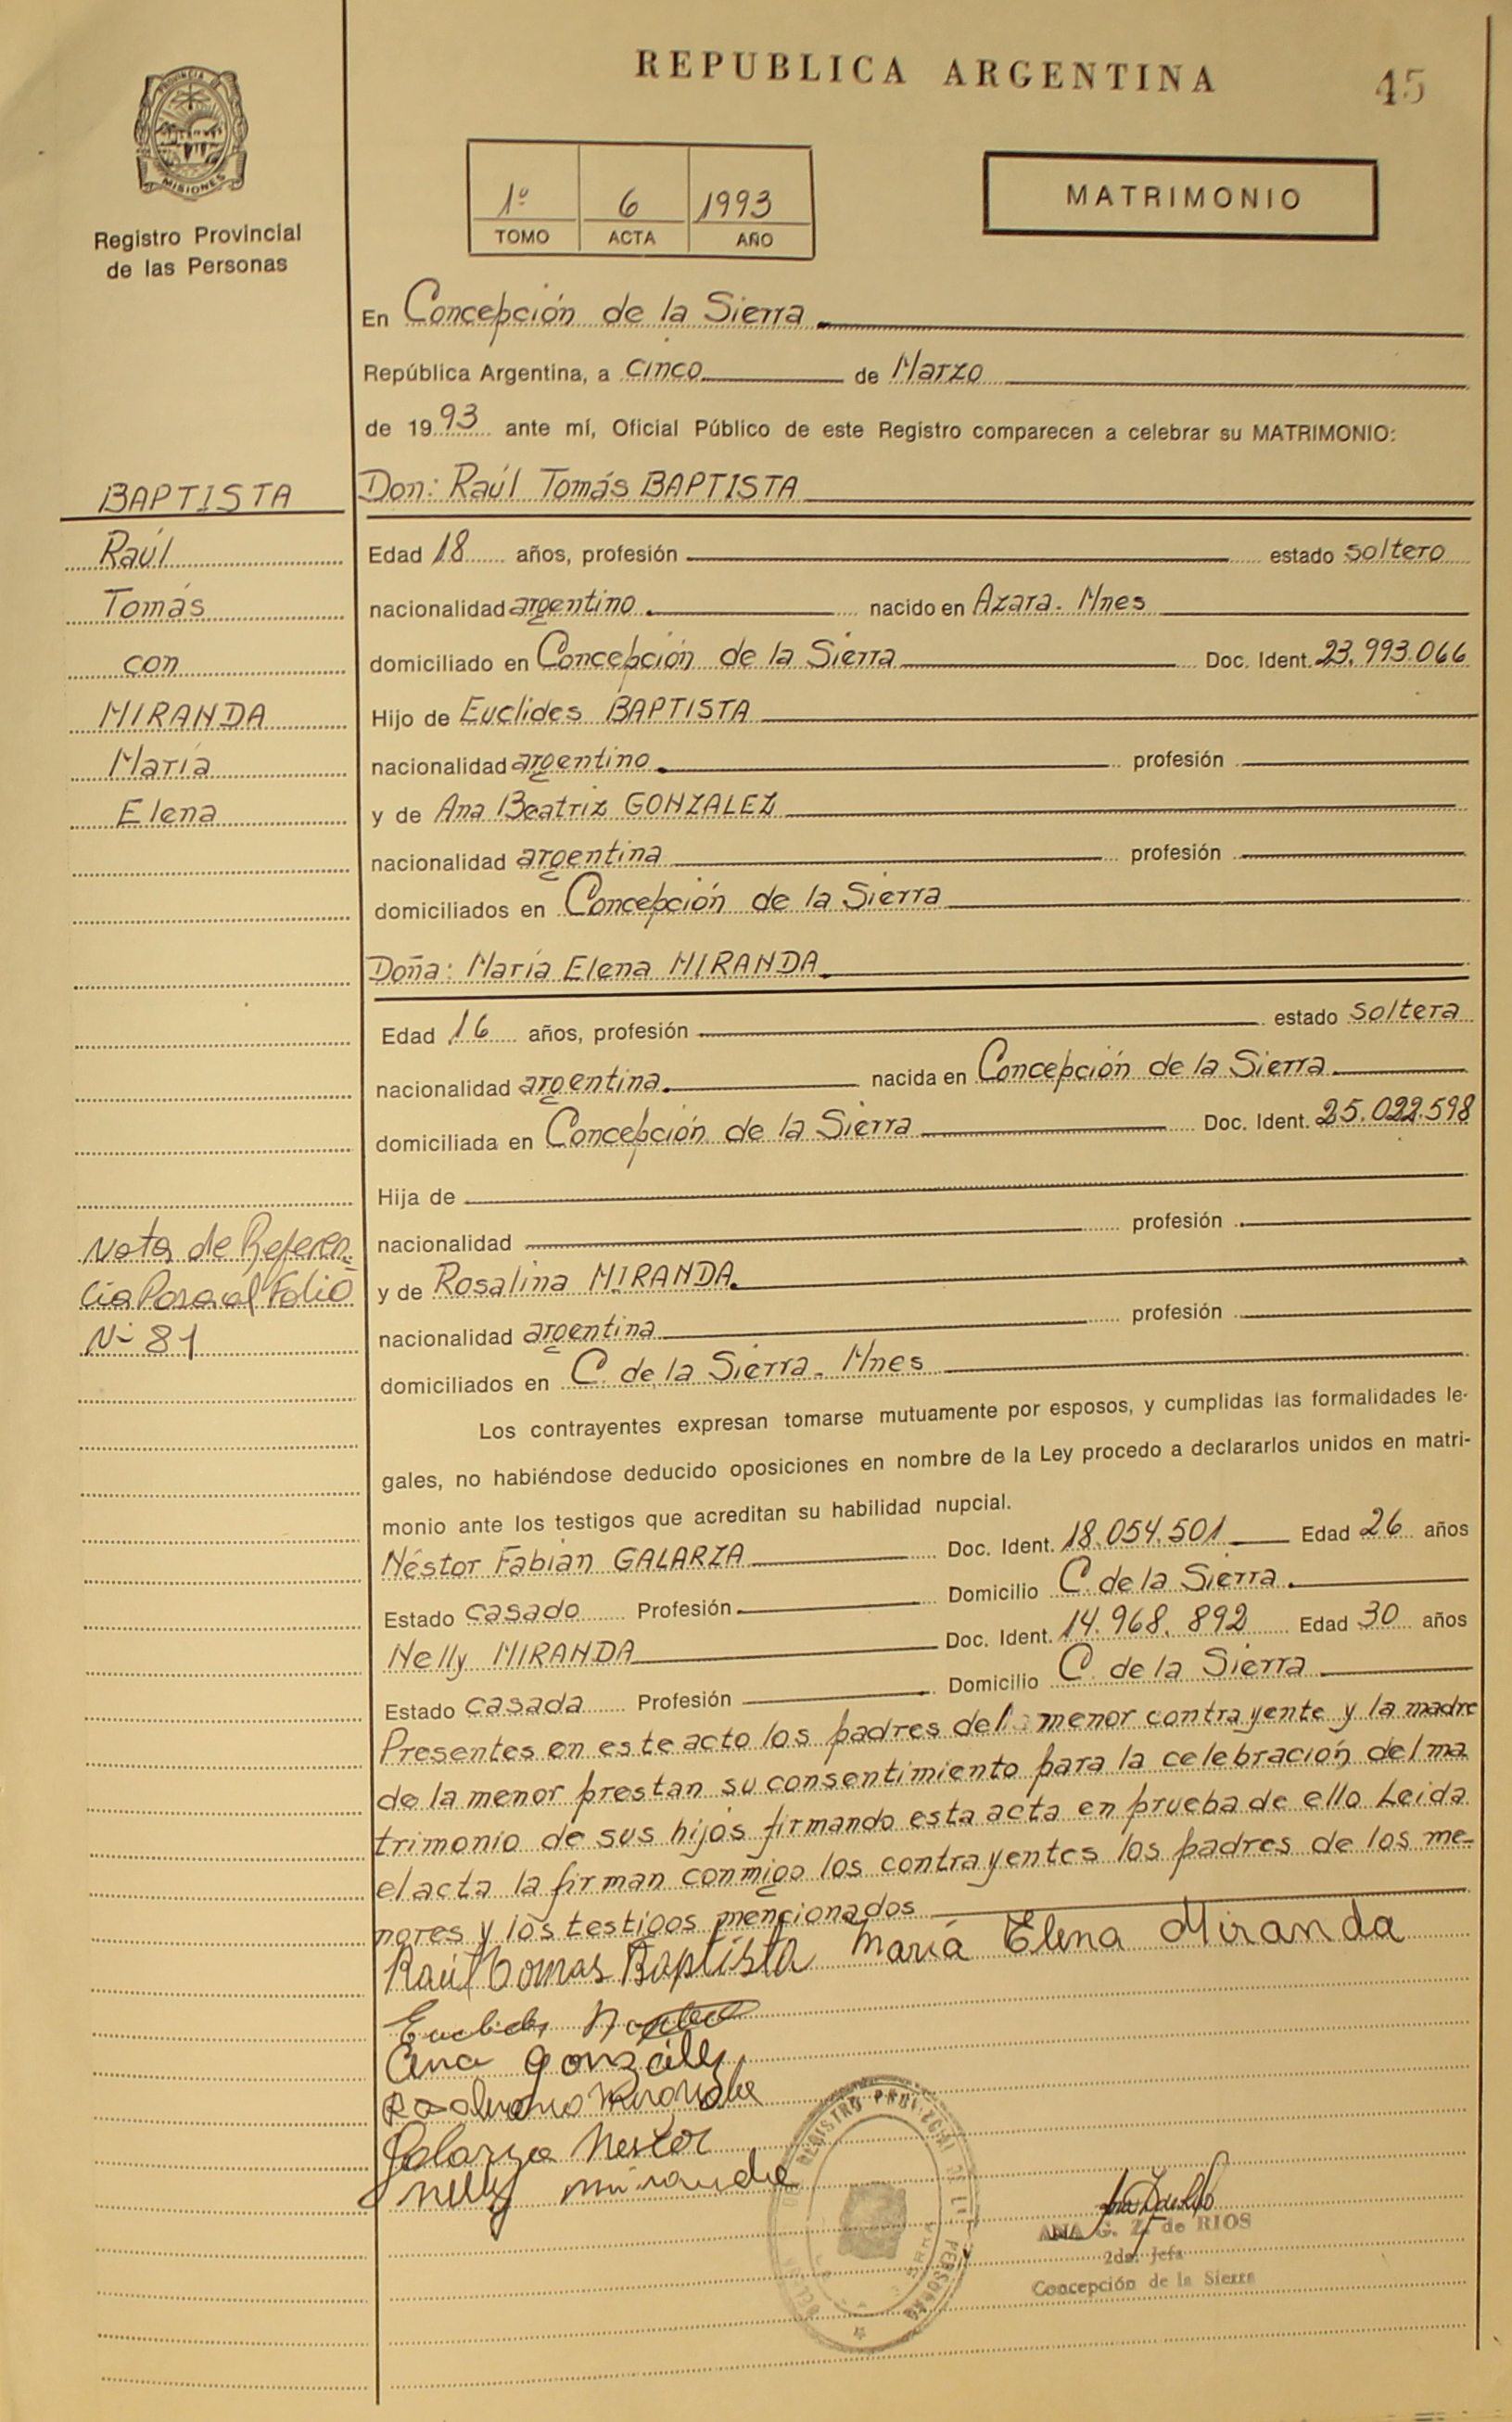 REPUBLICA ARGENTINA
45
PROVINCIA DE
MISIONES
Registro Provincial
de las Personas
1º 6 1993
TOMO ACTA AÑO
MATRIMONIO
En Concepción de la Sierra
República Argentina, a cinco de Marzo
de 1993 ante mí, Oficial Público de este Registro comparecen a celebrar su MATRIMONIO:
BAPTISTA
Raúl
Tomás
con
MIRANDA
María
Elena
Nota de Referen=
cia Pasa al Folio
Nº 81
Don: Raúl Tomás BAPTISTA
Edad 18 años, profesión estado soltero
nacionalidad argentino. nacido en Azara. Mnes
domiciliado en Concepción de la Sierra Doc. Ident. 23.993.066
Hijo de Euclides BAPTISTA
nacionalidad argentino. profesión
y de Ana Beatriz GONZALEZ
nacionalidad argentina profesión
domiciliados en Concepción de la Sierra
Doña: María Elena MIRANDA
Edad 16 años, profesión estado soltera
nacionalidad argentina. nacida en Concepción de la Sierra
domiciliada en Concepción de la Sierra Doc. Ident. 25.022.598
Hija de
nacionalidad profesión
y de Rosalina MIRANDA.
nacionalidad argentina profesión
domiciliados en C. de la Sierra. Mnes
Los contrayentes expresan tomarse mutuamente por esposos, y cumplidas las formalidades le-
gales, no habiéndose deducido oposiciones en nombre de la Ley procedo a declararlos unidos en matri-
monio ante los testigos que acreditan su habilidad nupcial.
Néstor Fabián GALARZA Doc. Ident. 18.054.501 Edad 26 años
Estado casado Profesión Domicilio C. de la Sierra.
Nelly MIRANDA Doc. Ident. 14.968.892 Edad 30 años
Estado casada Profesión Domicilio C. de la Sierra
Presentes en este acto los padres del menor contrayente y la madre
de la menor prestan su consentimiento para la celebración del ma
trimonio de sus hijos firmando esta acta en prueba de ello Leida
el acta la firman conmigo los contrayentes los padres de los me-
nores y los testigos mencionados
Raúl Tomas Baptista María Elena Miranda
Euclides
Ana González
Miranda
Galarza Nestor
Nelly miranda
REGISTRO PROVINCIAL DE LAS PERSONAS
ANA G. Z. de RIOS
2da. Jefa
Concepción de la Sierra